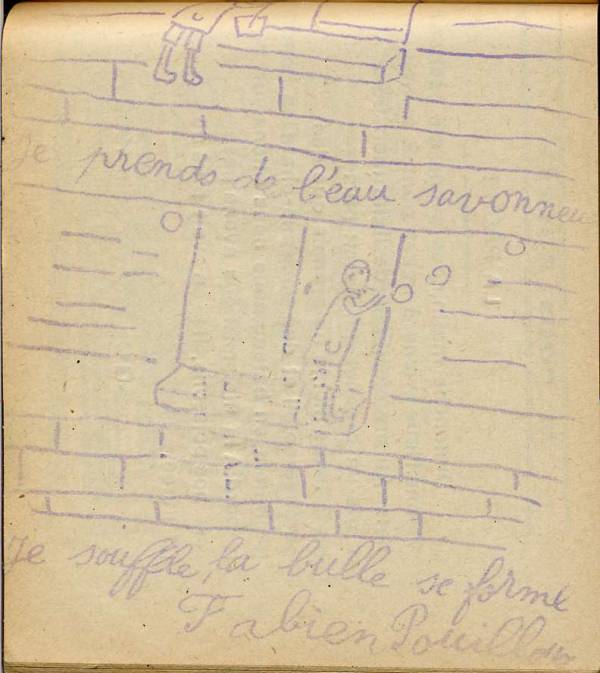 Je prends de l'eau savonneu
Je souffle, la bulle se forme
Fabien Pouill